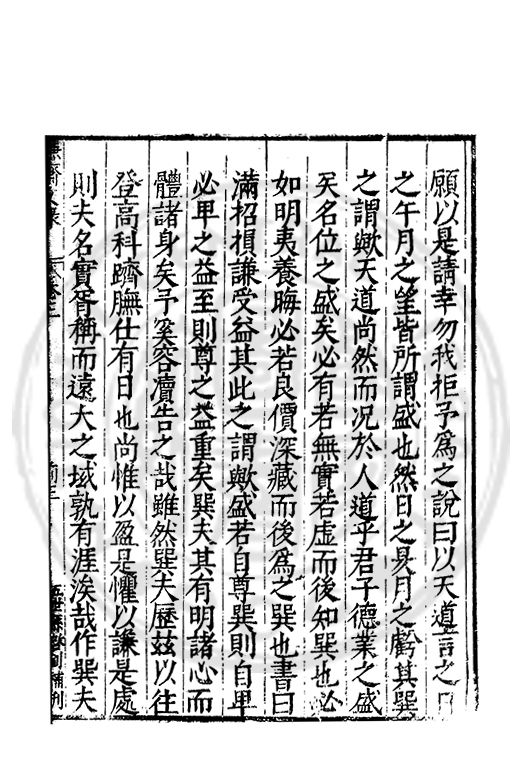 願以是請幸勿我拒予為之說曰以天道言之日
之午月之望皆所謂盛也然日之昃月之虧其巽
之謂歟天道尚然而况於人道乎君子德業之盛
矣名位之盛矣必有若無實若虛而後知巽也必
如明夷養晦必若良價深藏而後為之巽也書曰
滿招損謙受益其此之謂歟盛若自尊巽則自卑
必卑之益至則尊之益重矣巽夫其有明諸心而
體諸身矣予奚容瀆告之哉雖然巽夫歷茲以往
登高科躋膴仕有日也尚惟以盈是懼以謙是處
則夫名實胥稱而遠大之域孰有涯涘哉作巽夫